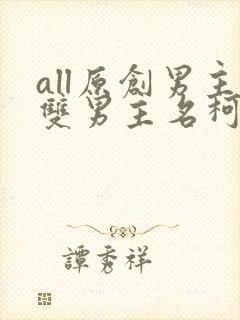 all原創男主
雙男主名柯
譚秀祥